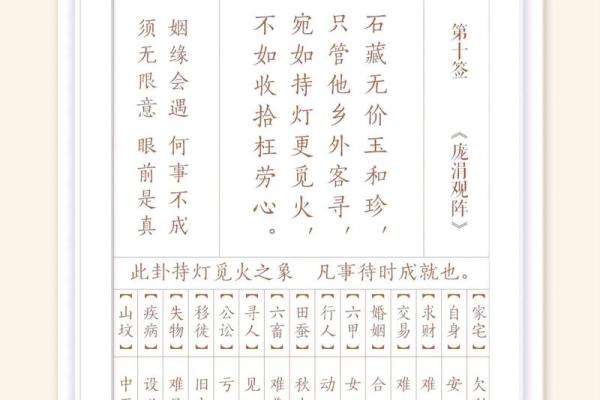 第十签 《庞涓观阵》
石藏无价玉和珍，
只管他乡外客寻，
宛如持灯更觅火，
不如收拾枉劳心。
姻缘会遇 何事不成
须无限意 眼前是真
此卦持灯觅火之象 凡事待时成就也。
【家宅】欠
【自身】安
【求财】难
【交易】难
【婚姻】合
【六甲】女
【行人】动
【田蚕】秋
【六畜】难
【寻人】见
【公讼】亏
【移徙】旧
【失物】难
【疾病】设
【山坟】中